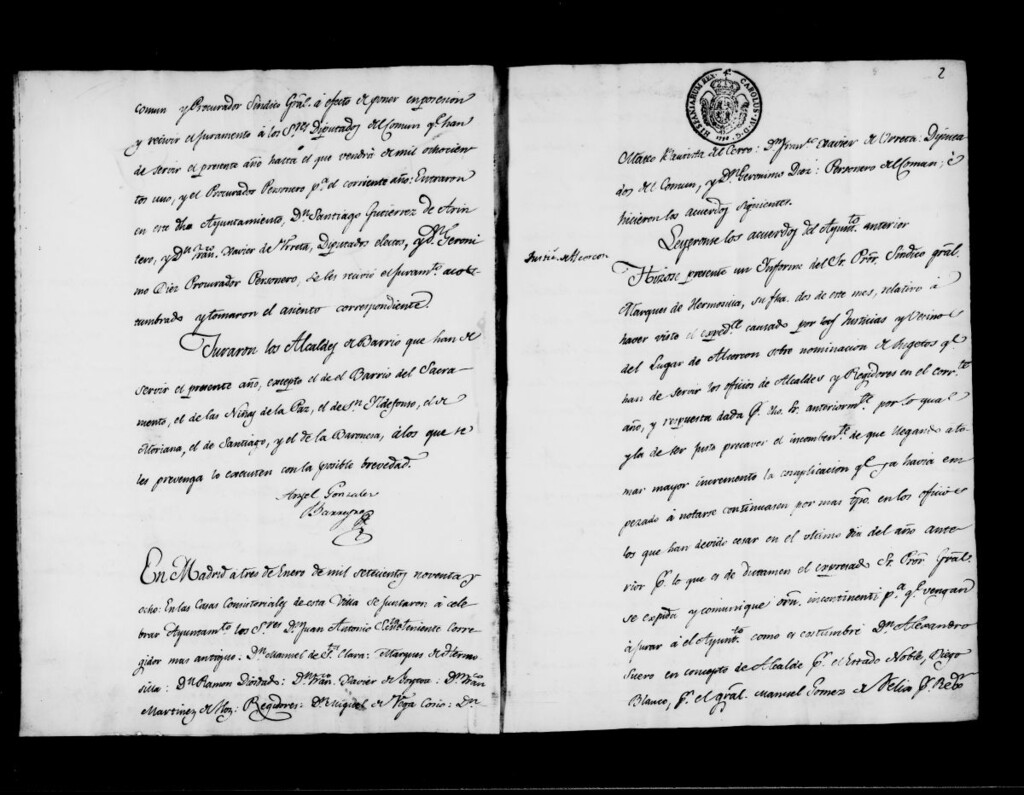 comun y Procurador Sindico Gral. á efecto de poner en posesion
y recivir el juramento á los S.res Diputados del Comun q.e han
de servir el presente año hasta el que vendrá de mil ochocien
tos uno, y el Procurador Personero p.a el corriente año: Entraron
en este dho Ayuntamiento, D.n Santiago Gutierrez de Arin
tero, y d.n Fran.co Xavier de Urreta, Diputados electos, y D.n Geroni
mo Diez Procurador Personero, se les recivió el juram.to acos
tumbrado y tomaron el asiento correspondiente.
Juraron los Alcaldes de Barrio que han de
servir el presente año, excepto el de el Barrio del Sacra
mento, el de las Niñas de la Paz, el de S.n Ildefonso, el de
Moriana, el de Santiago, y el de la Baronesa, á los que se
les prevenga lo executen con la posible brevedad.
Angel Gonzalez
Barreyro
En Madrid a tres de Enero de mil setecientos noventa y
ocho: En las Casas Consistoriales de esta Villa se juntaron á cele
brar Ayuntam.to los S.res D.n Juan Antonio Teniente Corre
gidor mas antiguo: D.n Manuel de S.ta Clara: Marques de Hermo
silla: D.n Ramon Diosdado: D.n Fran.co Xavier de D.n Fran.co
Martinez de Hoz: Regidores: D.n Miguel de Vega Cosio: D.n
2
HISPANIARUM REX CAROLUS IV D. G.
1798
Mateo del Cerro: D.n Fran.co Xavier de Urreta: Diputa
dos del Comun, y D.n Geronimo Diez: Personero del Comun; é
hicieron los acuerdos siguientes.
Leyeronse los acuerdos del Ayunt.to anterior
Justi.a de Alcorcon
Hizose presente un Informe del Sr. Pror. Sindico gral.
Marques de Hermosilla, su fha. dos de este mes, relativo á
haver visto el exped.te causado por las Justicias y Vecinos
del Lugar de Alcorcon sobre nominacion de sugetos q.e
han de servir los oficios de Alcaldes y Regidores en el corr.te
año, y respuesta dada p.r dho. Sr. anteriorm.te por lo qual
y la de ser justo precaver el incombenien.te de que llegando a to-
mar mayor incremento la complicacion q.e ya havia em
pezado á notarse continuasen por mas tpo. en los oficios
los que han devido cesar en el ultimo dia del año ante
rior p.r lo que es de dictamen el expresado Sr. Pror. Gral.
se expida y comunique orn. incontinenti p.a q.e vengan
á jurar á el Ayunt.to como es costumbre D.n Alexandro
Suero en concepto de Alcalde p.r el Estado Noble, Diego
Blanco, p.r el gral. Manuel Gomez de Velia p.r Red.r